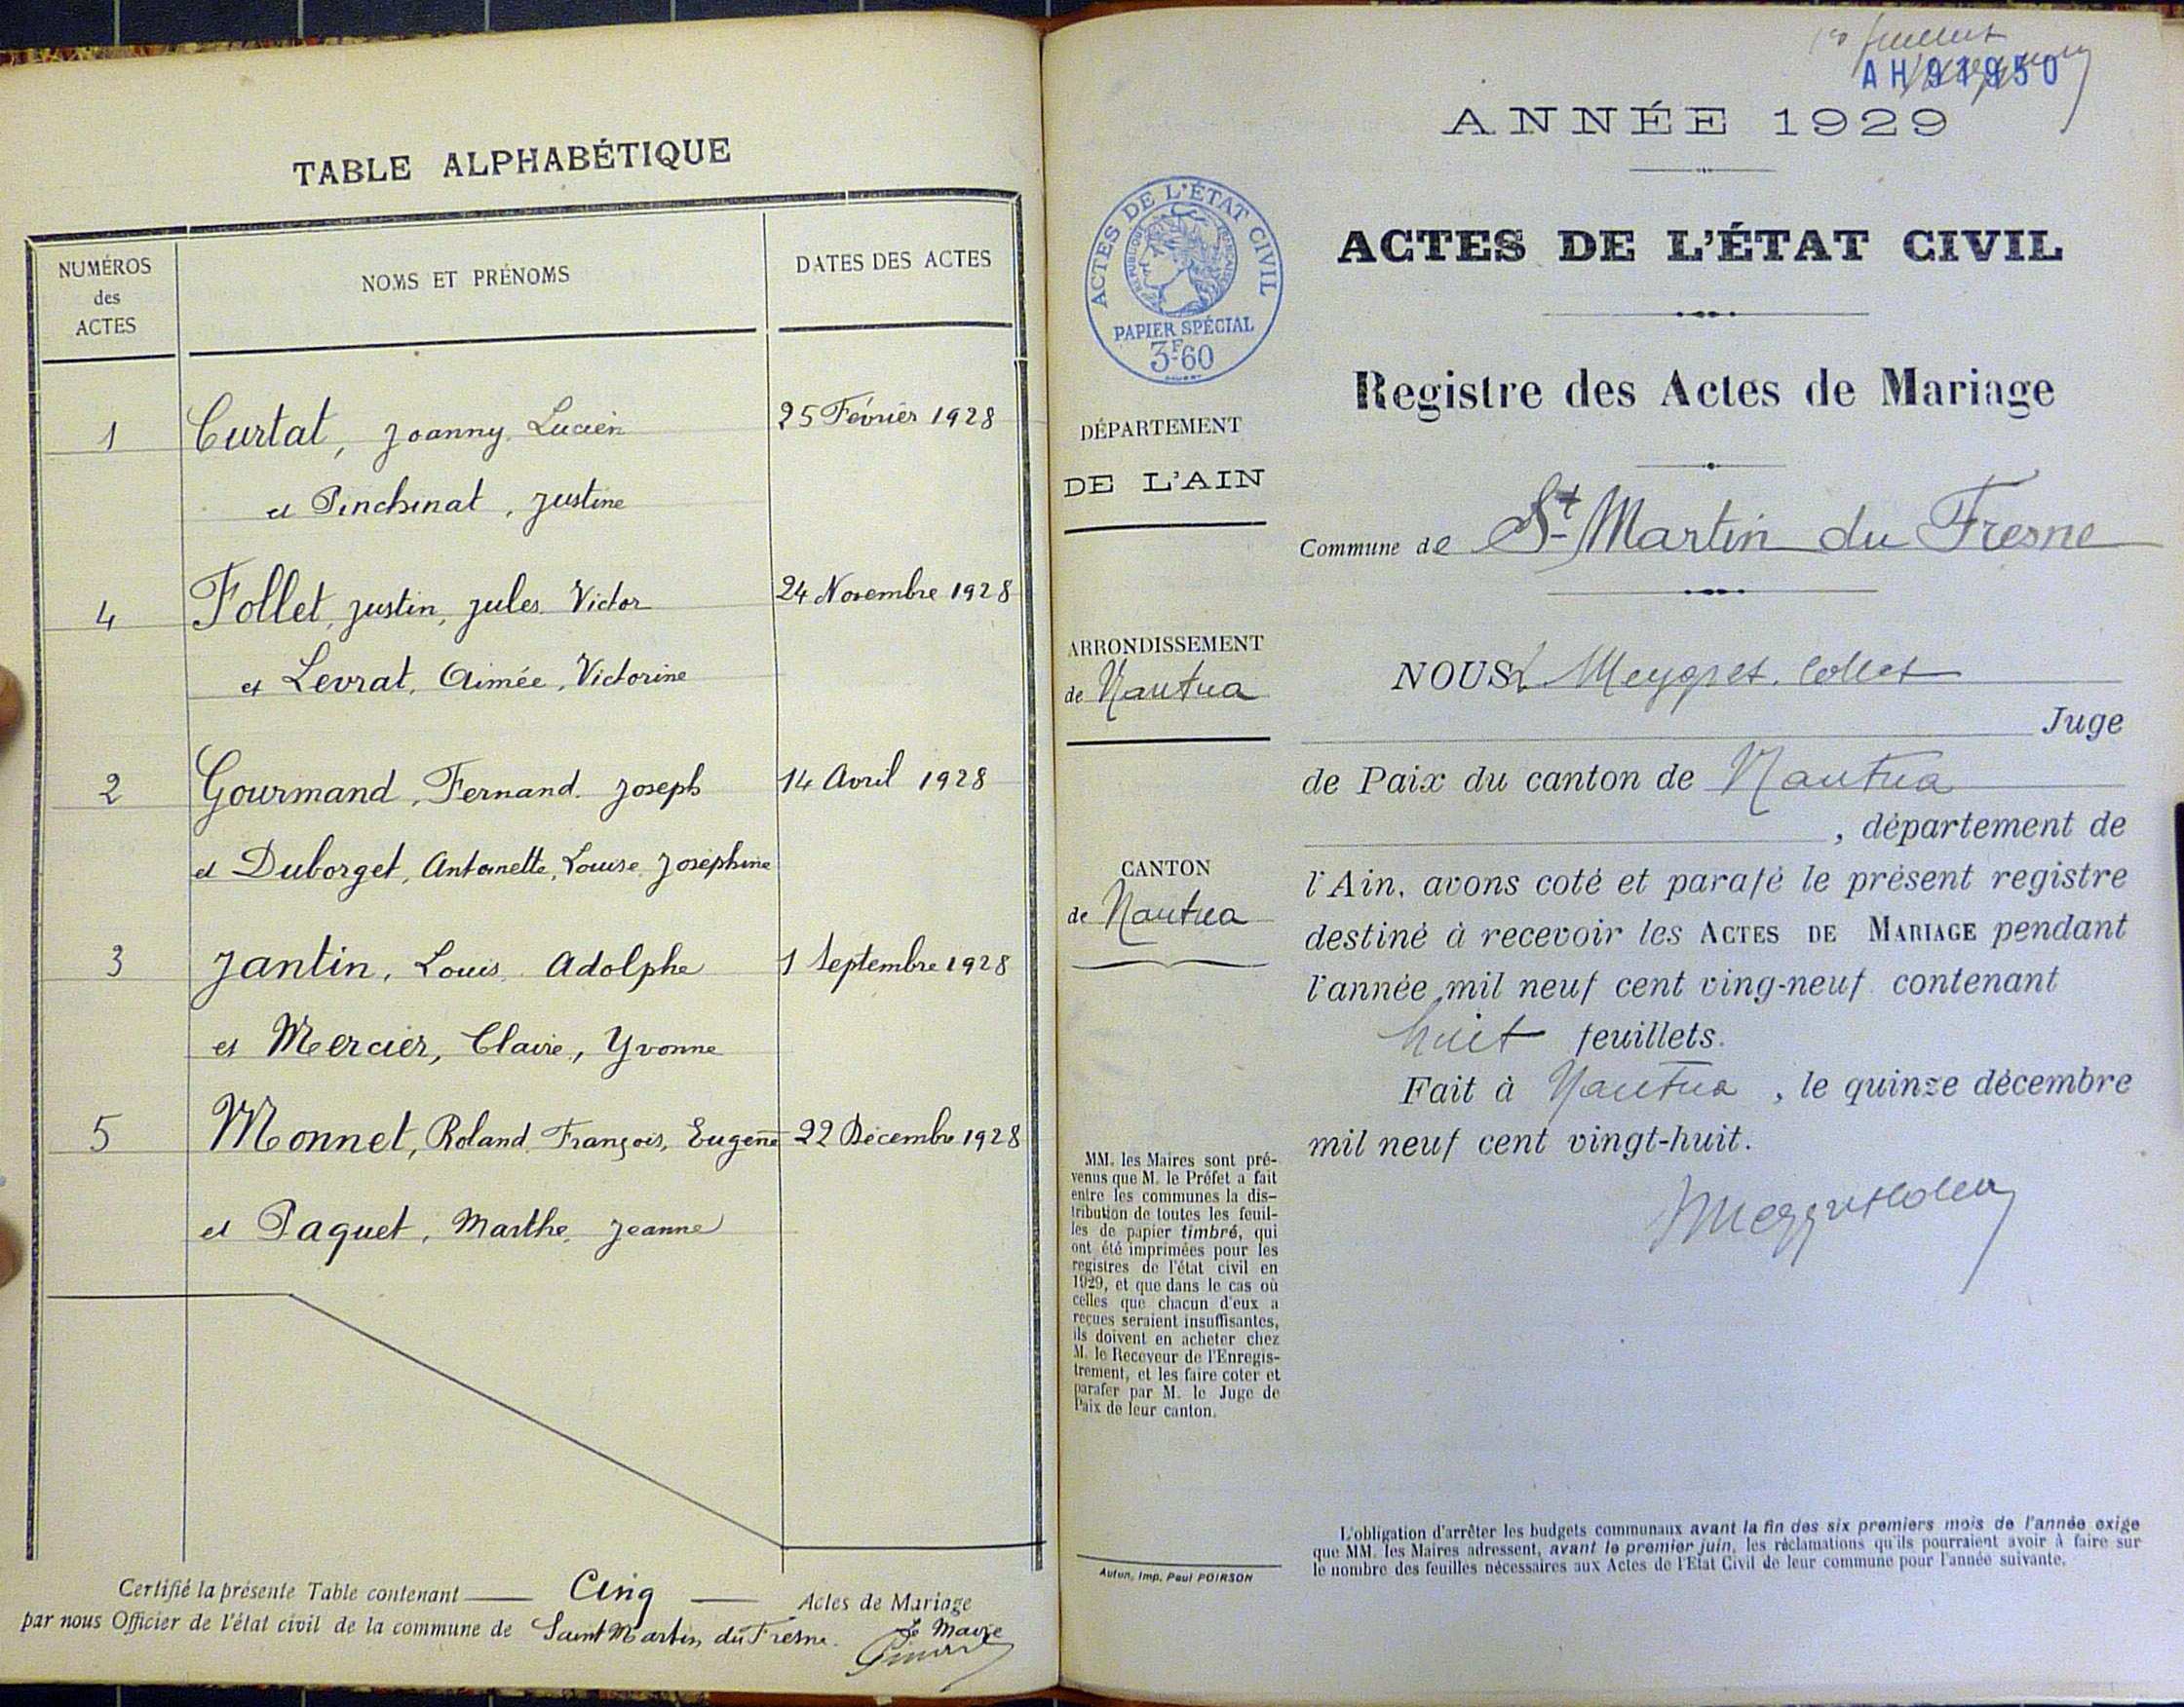 TABLE ALPHABÉTIQUE
NUMÉROS
des
ACTES
NOMS ET PRÉNOMS
DATES DES ACTES
1 Curtat, Joanny Lucien 25 Février 1928
et Pinchinat, Justine
4 Follet, Justin, Jules Victor 24 Novembre 1928
et Levrat, Aimée, Victorine
2 Gourmand, Fernand Joseph 14 Avril 1928
et Duborget, Antoinette, Louise, Joséphine
3 Jantin, Louis Adolphe 1 Septembre 1928
et Mercier, Claire, Yvonne
5 Monnet, Roland François, Eugène 22 Décembre 1928
et Paquet, Marthe, Jeanne
Certifié la présente Table contenant Cinq Actes de Mariage
par nous Officier de l'état civil de la commune de Saint Martin du Fresne. Le Maire
feuillets
AH 91950
ANNÉE 1929
ACTES DE L'ÉTAT CIVIL
RÉPUBLIQUE FRANÇAISE
PAPIER SPÉCIAL
3F.60
ACTES DE L'ÉTAT CIVIL
Registre des Actes de Mariage
DÉPARTEMENT
DE L'AIN
Commune de St Martin du Fresne
ARRONDISSEMENT
de Nantua
CANTON
de Nantua
NOUS
Juge
de Paix du canton de Nantua
, département de
l'Ain, avons coté et parafé le présent registre
destiné à recevoir les ACTES DE MARIAGE pendant
l'année mil neuf cent ving-neuf contenant
huit feuillets.
Fait à Nantua, le quinze décembre
mil neuf cent vingt-huit.
MM. les Maires sont pré-
venus que M. le Préfet a fait
entre les communes la dis-
tribution de toutes les feuil-
les de papier timbré, qui
ont été imprimées pour les
registres de l'état civil en
1929, et que dans le cas où
celles que chacun d'eux a
reçues seraient insuffisantes,
ils doivent en acheter chez
M. le Receveur de l'Enregis-
trement, et les faire coter et
parafer par M. le Juge de
Paix de leur canton.
Autun, Imp. Paul POIRSON
L'obligation d'arrêter les budgets communaux avant la fin des six premiers mois de l'année exige
que MM. les Maires adressent, avant le premier juin, les réclamations qu'ils pourraient avoir à faire sur
le nombre des feuilles nécessaires aux Actes de l'Etat Civil de leur commune pour l'année suivante.